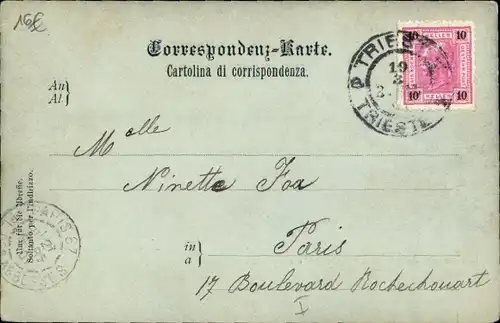 16L
Correspondenz-Karte.
Cartolina di corrispondenza.
An
Al
TRIEST
TRIESTE
19
10 10
HELLER
10 10
Mlle
Ninette Foa
in
a
Paris
17 Boulevard Rochechouart
I
Nur für die Adresse.
Soltanto per l'indirizzo.
PARIS